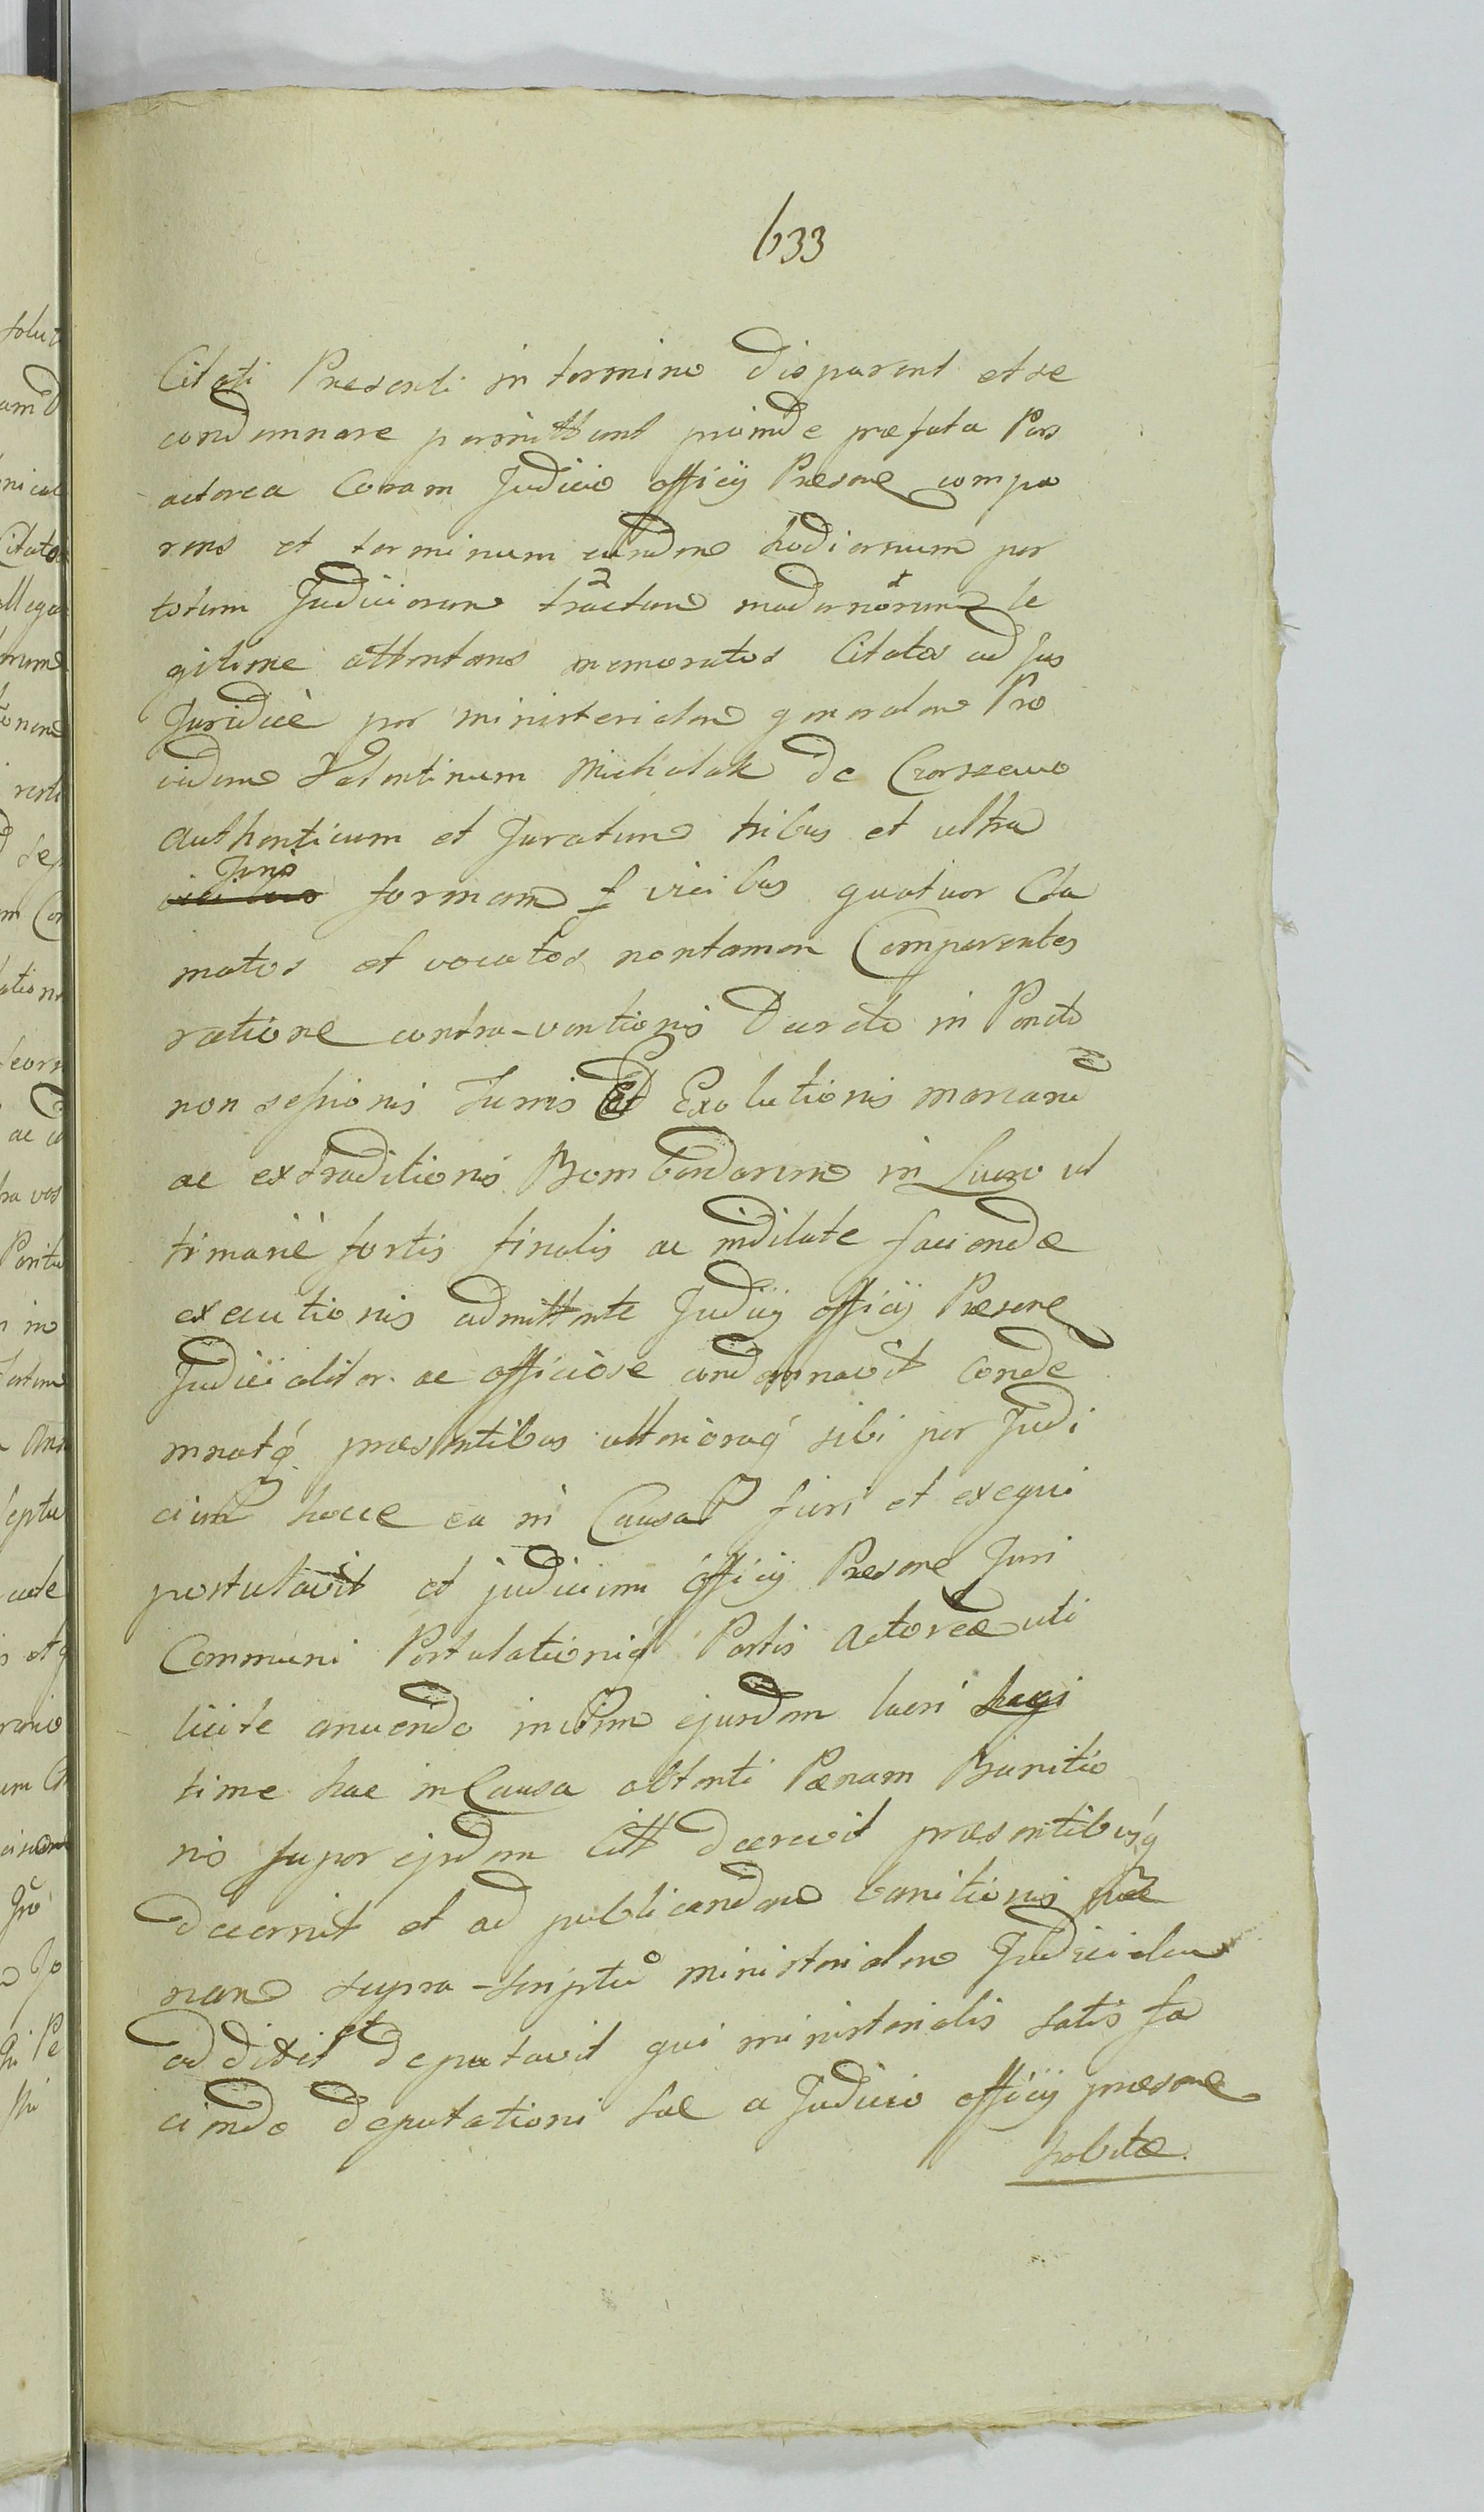 633
Citati Presenti in termino disparent et se
condemnare permittant proinde præfata Pars
actorea Coram Judicio officij Præsone compa
rens et terminum eundem hodiernum per
totum Judiciorum tractum modernorum le
gitime attentans memoratos Citatos ad jus
Juridicè per ministerialem generalem Pro
vidum Valentinum Michalak de
authenticum et Juratum tribus et ultra
Juris formam vicibus quatuor Cla
matos et vocatos nontamen Comparentes
ratione contra-ventionis Decreto in Puncto
non sessionis Turris Et Exolutionis marcarum
ac extraditionis Bombardarum in Lucro ul
timariè fortis finalis ac indilate faciendæ
executionis admittente Judicij officij Præsone
Judicialiter ac officiose condemnavit conde
mnatq́ præsentibus ulterioraq́ sibi per Judi
cium hocce ea in Causa fieri et exequi
postulavit et judicium officij Præsone Juri
Communi Postulationiq́ Partis Actoreæ uti
licite anuendo in vim ejusdem lucri Legi
time hac in Causa obtenti Pænam Banitio
nis super ejsdem Citt decrevit præsentibusq́
decernit et ad publicandam banitionis pæ
nam supra-scriptū ministerialem Judicialem
addixit et deputavit qui ministerialis satis fa
ciendo deputationi suæ a Judicio officij præsone
habitæ.